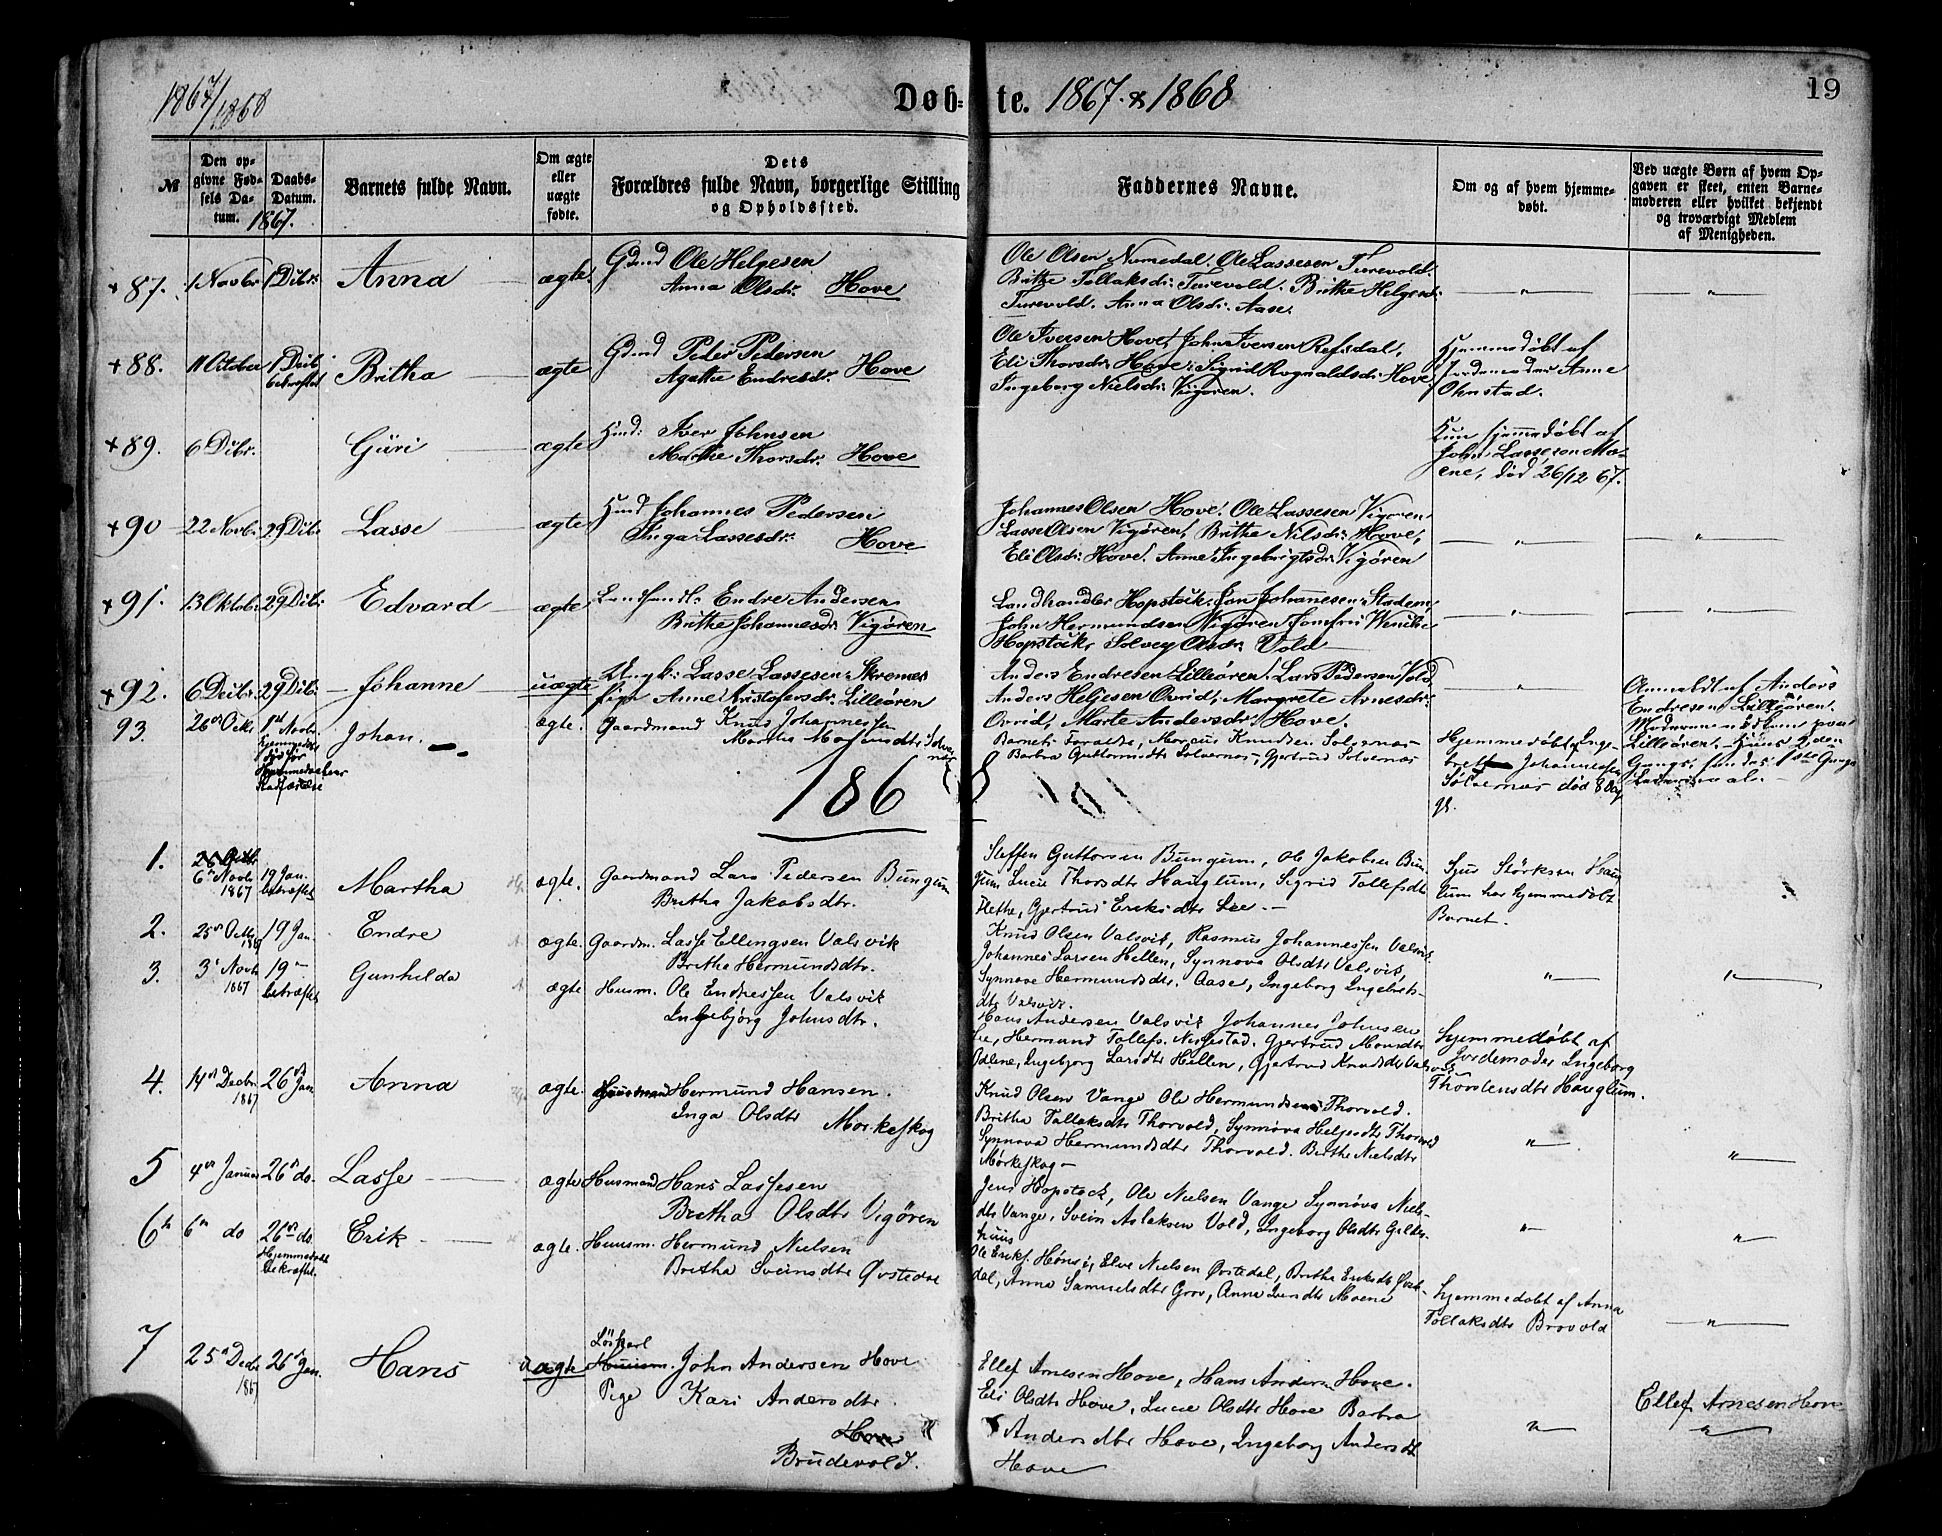 1867/1868
Døb-te. 1867 & 1868
19
№
Den opgivne Fødsels Datum.
1867.
Daabs-Datum.
Barnets fulde Navn.
Om ægte eller uægte fødte.
Dets
Forældres fulde Navn, borgerlige Stilling
og Opholdssted.
Faddernes Navne.
Om og af hvem hjemmedøbt.
Ved uægte Børn af hvem Opgaven er skeet, enten Barnemoderen eller hvilket bekjendt og troværdigt Medlem af Menigheden.
+87. 1 Novbr 1 Dcbr. Anna ægte Gdmd Ole Helgesen
Anna Olsdr. Hove
Ole Olsen Numedal. Ole Lassesen Turevold.
Brithe Tollaksdr. Turevold. Brithe Helgesdr.
Turevold. Anna Olsdr. Aase.
+88. 11 October 1 Dcbr bekræftet Britha ægte Gdmd Peder Pedersen
Agathe Endresdr. Hove
Ole Iversen Hove, John Iversen Refsdal,
Eli Thorsdr. Hove. Sigrid Rognaldsdr. Hove
Ingeborg Nielsdr. Vigøren.
Hjemmedøbt af
Jordemoder Anne
Ohnstad.
+89. 6 Dcbr. Guri ægte Hmd: Iver Johnsen
Marthe Thorsdr. Hove
Kun hjemmedøbt af
John Lassesen Moene, død 26/12 67.
+90 22 Novbr 29 Dcbr Lasse ægte Hmd Johannes Pedersen
Inga Lassesdr. Hove
Johannes Olsen Hove. Ole Lassesen Vigøren
Lasse Olsen Vigøren, Brithe Nilsdr. Hove,
Eli Olsdr. Hove. Anne Ingebrigtsdr. Vigøren
+91. 13 Oktobr 29 Dcbr Edvard ægte Landhandl. Endre Andersen
Brithe Johannesdr. Vigøren
Landhandler Hopstock. Jon Johannesen Stadem,
John Hermundsen Vigøren. Jomfru Wenche
Hopstock, Solvey Olsdr. Vold
+92. 6 Dcbr. 29 Dcbr. Johanne uægte Ungk: Lasse Lassesen Skromes
Pige Anne Kristofersdr. Lilleøren
Anders Endresen Lilleøren. Lars Pedersen Vold
Anders Helgesen Orvid, Margrete Arnesdr.
Orvid, Marte Andersdr. Hove.
Anmeldt af Anders
Endresen Lilleøren.
93. 26 Octr 1ste Novbr. Johan. ægte. Gaardmand Knud Johannessen
Martha
Barnets Forældre, Marcus Knudsen Solvernas
Barbra Guttormsdtr Solvernas, Gjertrud Solvernas
Hjemmedøbt af Ingebrett Johannessen
Solvernas død 8 Dag
gl.
1868
1. 6 Novbr 1867 19 Jan. bekræftet Martha ægte. Gaardmand Lars Pedersen Bungum
Britha Jakobsdtr.
Steffen Guttorsen Bungum, Ole Jakobsen Bungum
Lucie Thorsdtr Hauglum, Sigrid Tollefsdtr
Hethe, Gjertrud Eriksdtr Lee.
Sjur Størksen Hauglum har hjemmedøbt
Barnet.
2. 25 Octbr 1867 19 Jan. Endre ægte. Gaardm. Lasse Ellingsen Valsvik
Britha Hermundsdtr.
Knud Olsen Valsvik, Rasmus Johannessen Valsvik
Johannes Larsen Hellen, Synnova Olsdtr Valsvik,
Synnova Hermundsdtr. Aase, Ingeborg Ingebretsdtr Valsvik.
3. 3 Novbr 1867 19 bekræftet Gunhilda ægte Husm. Ole Endressen Valsvik
Ingebjörg Johnsdtr.
Hans Andersen Valsvik Johannes Johnsen
Lee, Hermund Tollefs. Nissestad. Gjertrud Monsdtr
Ødlene, Ingebjorg Larsdtr Hellen, Gjertrud Knudsdtr Valsvik
Hjemmedøbt af
Jordemoder Ingeborg
Thorstensdtr Hauglum.
4. 14 Decbr 1867 26 Jan. Anna ægte. Hermund Hansen.
Inga Olsdtr Morkeskog
Knud Olsen Vange Ole Hermundsen Thorvold.
Britha Tollaksdtr Thorvold, Synnova Helgesdtr Thorvold
Synnova Hermundsdtr Thorvold. Brithe Nielsdtr
Mørkeskog
5 4 Januar 26 do. Lasse ægte Husmand Hans Lassesen
Bretha Olsdtr Vigören
Jens Hopstock, Ole Nielsen Vange Synnova Nielsdtr Vange, Svein Aslaksen Vold, Ingeborg Olsdtr Gildeshuus
6 6 do 26 do. Hjemmedaab bekræftet. Erik ægte. Huusm. Hermund Nielsen
Bretha Sveinsdtr Ovstedal
Ole Eriks. Hønsi, Elve Nielsen Øvstedal, Britha Eriksdtr Øvstedal, Anna Samuelsdtr Grov, Anne Moene
Hjemmedøbt af Anna
Tollaksdtr Brovold
7 25 Decbr 1867 26 Jan. Hans uægte Löskarl
John Andersen Hove
Pige Kari Andersdtr
Hove
Brudevold.
Ellef Arnesen Hove, Hans Anders Hove.
Eli Olsdtr Hove, Lucie Olsdtr Hove Barbra
Andersdtr Hove, Ingeborg Andersdtr
Hove
Ellef Arnesen Hove